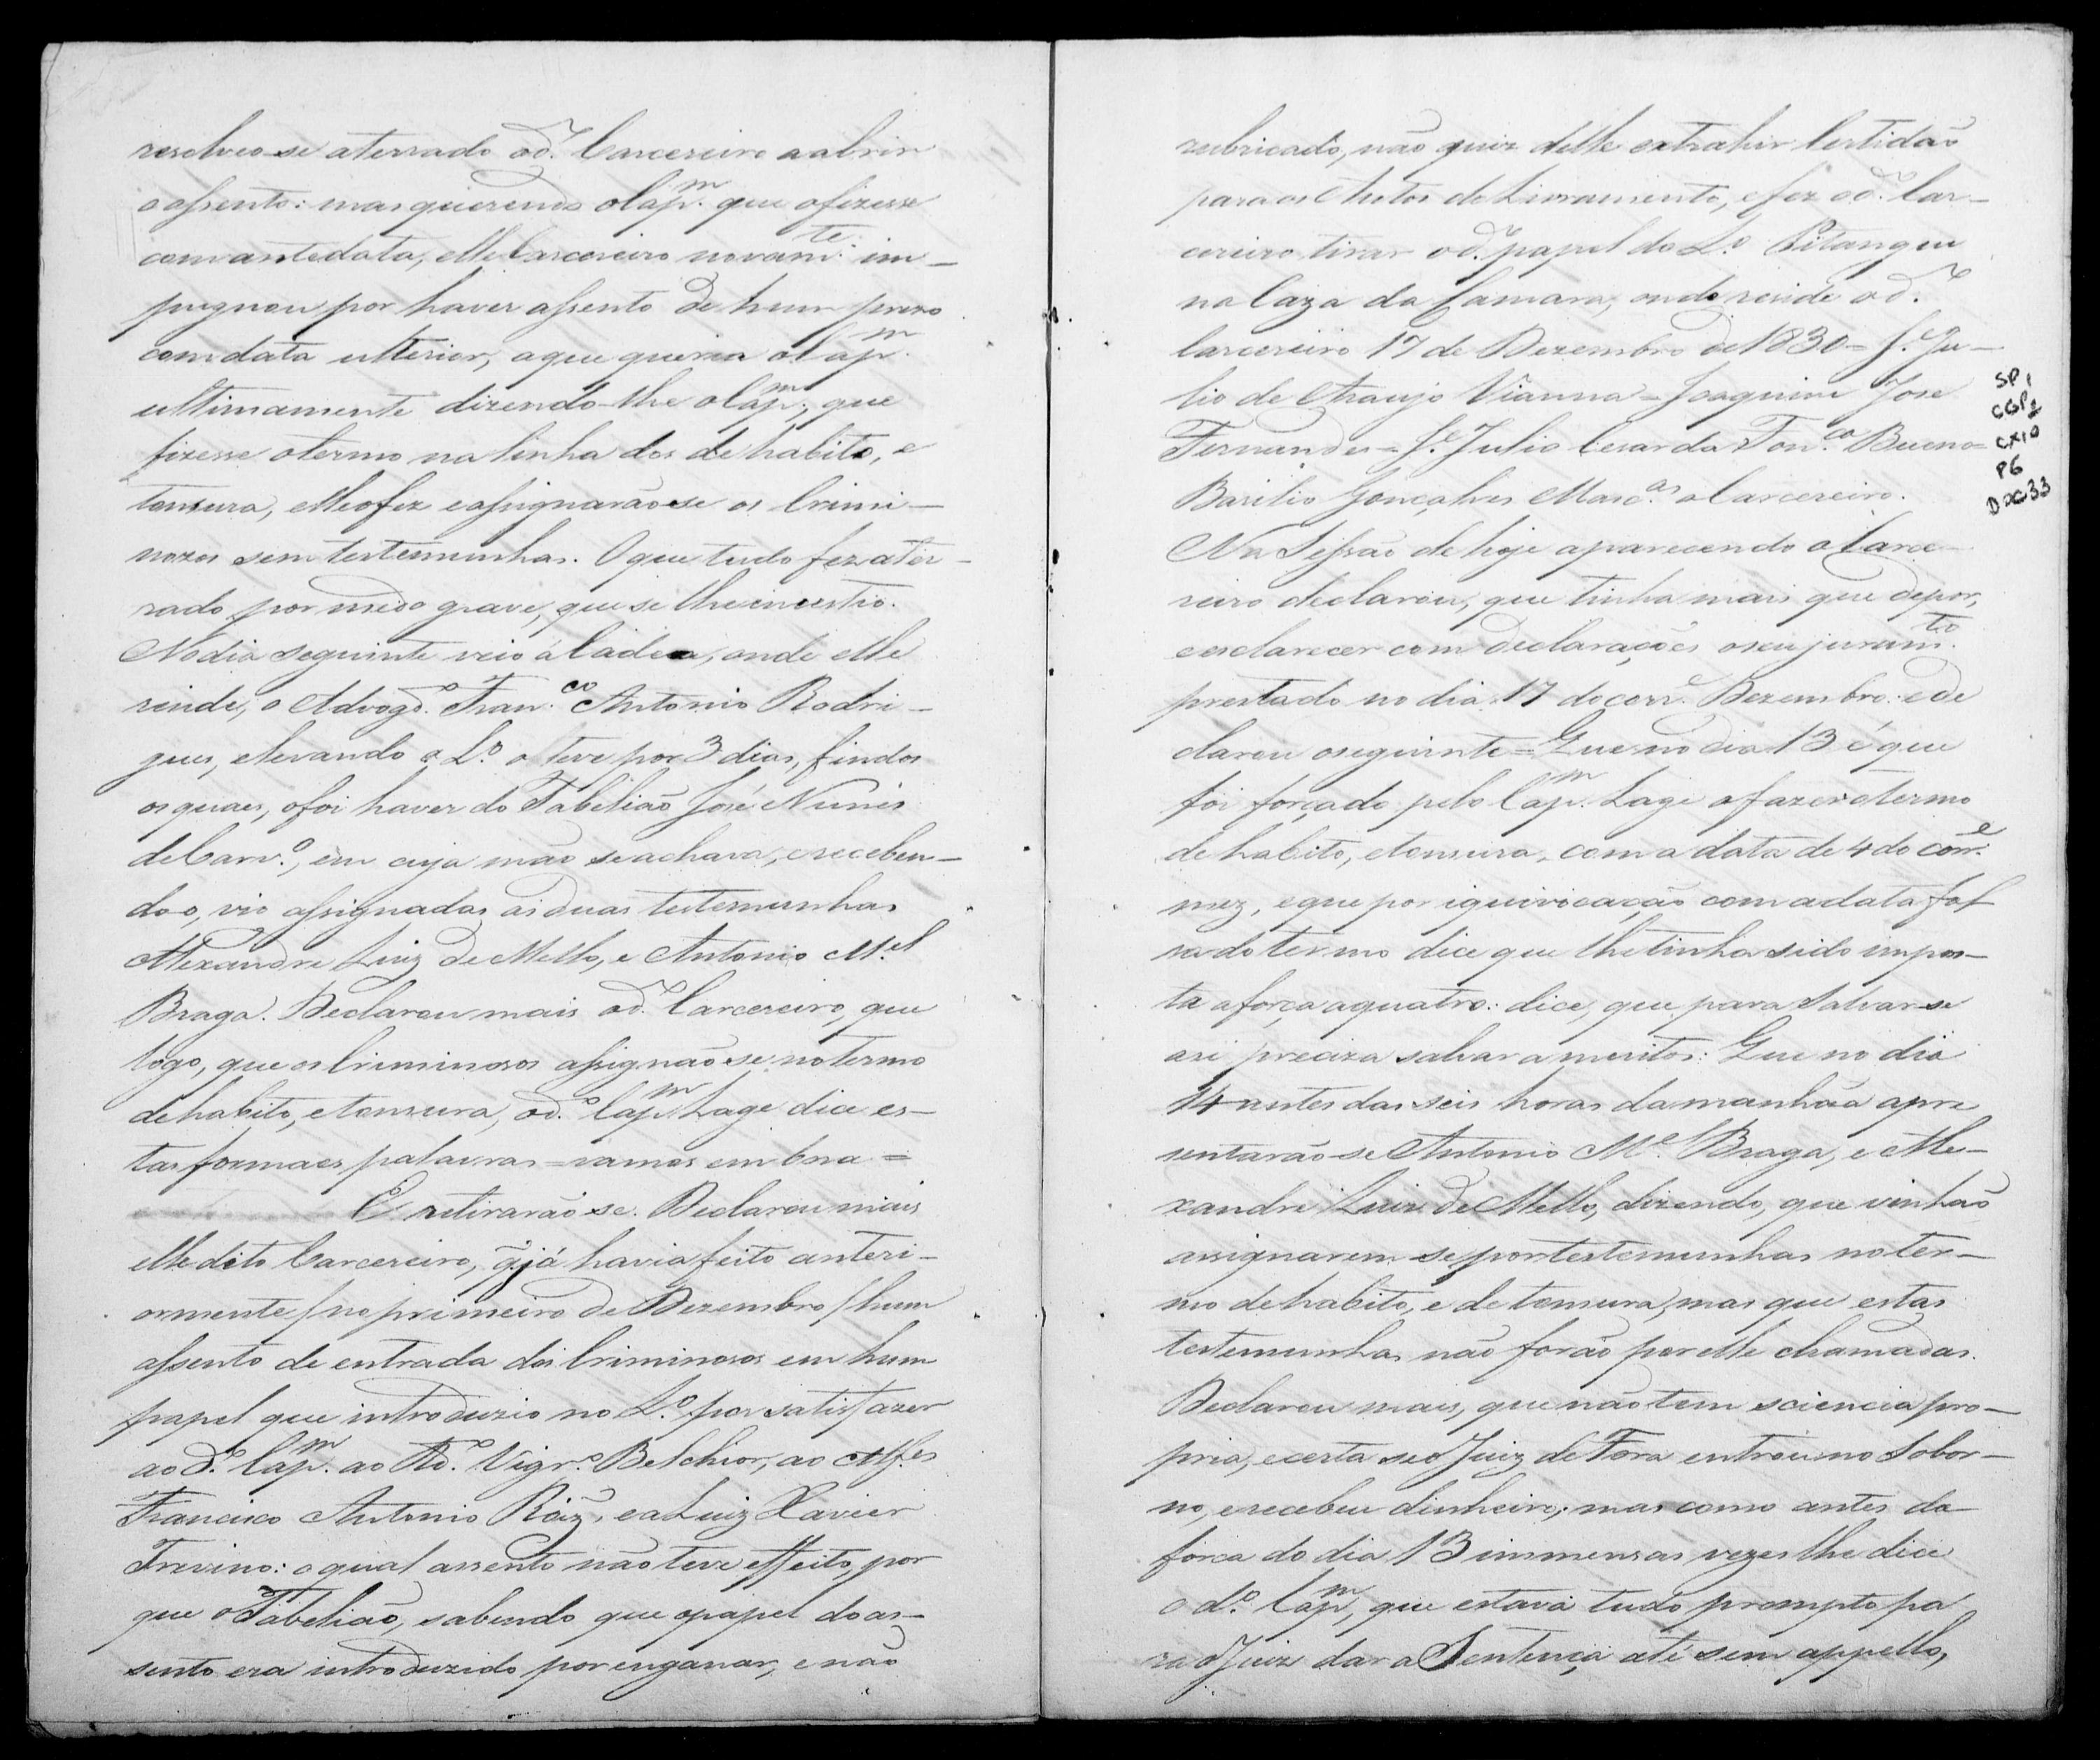 resolveo-se aterrado od.º Carcereiro a abrir
o assento: mas querendo o Cap.m que o fizesse
com antedata, elle Carcereiro novam.te im-
pugnou por haver assento de hum prezo
com data ulterior, a que queria o Cap.m
ultimamente dizendo-lhe o Cap.m, que
fizesse o termo na linha dos de habito, e
tonsura, elle o fez e assignarão-se os Crimi-
nozos sem testemunhas. O que tudo fez ater-
rado por medo grave, que se lhe incutio.
No dia seguinte veio á Cadea, onde elle
reside, o Advog.do Fran.co Antonio Rodri-
gues, e levando o L.º o teve por 3 dias, findos
os quaes, o foi haver do Tabelião José Nunes
de Carv.º, em cuja mão se achava, e receben-
do-o, vio assignadas as duas testemunhas
Alexandre Luiz de Mello, e Antonio M.el
Braga. Declarou mais od.º Carcereiro, que
logo, que os Criminosos assignão-se no termo
de habito, e tonsura, od.º Cap.m Lage dice es-
tas formaes palavras = vamos embora =
E retirarão-se. Declarou mais
elle dito Carcereiro, q̃ já havia feito anteri-
ormente / no primeiro de Dezembro / hum
assento de entrada dos Criminosos em hum
papel que introduzio no L.º por satisfazer
ao d.º Cap.m ao R.do Vigr.º Belchior, ao Alf.es
Francisco Antonio Roiz, e a Luiz Xavier
Trevino: o qual assento não teve effeito, por
que o Tabelião, sabendo que o papel do as-
sento era introduzido por enganar, e não
rubricado, não quiz delle extrahir Certidão
para os Autos de Livramento, e fez od.º Car-
cereiro tirar od.º papel do L.º Pitangui
na Caza da Camara, onde reside od.º
Carcereiro 17 de Dezembro de 1830 = J.e Ju-
lio de Araujo Vianna = Joaquim Jose
Fernandes = J.e Julio Cesar da Fon.ca Bueno =
Bazilio Gonçalves Masc.as o Carcereiro.
Na Sessão de hoje aparecendo o Carce-
reiro declarou, que tinha mais que depor,
e esclarecer com declarações o seu juram.to
prestado no dia 17 do corr.e Dezembro: e de
clarou o seguinte = Que no dia 13 é que
foi forçado pelo Cap.m Lage a fazer o termo
de habito, e tonsura, com a data de 4 do corr.e
mez, e que por iquivocação com a data fal
sa do termo dice que lhe tinha sido impos-
ta a força a quatro: dice, que para Salvar-se
a si preciza salvar a muitos: Que no dia
14 antes das seis horas da manhãa apre
sentarão-se Antonio M.el Braga, e Ale-
xandre Luiz de Mello, dizendo, que vinhão
assignarem-se por testemunhas no ter-
mo de habito, e de tonsura, mas que estas
testemunhas não forão por elle chamadas.
Declarou mais, que não tem sciencia pro-
pria, e certa se o Juiz de Fora entrou no Sobor-
no, e recebeu dinheiro; mas como antes da
força do dia 13 immensas vezes lhe dice
o d.º Cap.m, que estava tudo prompto pa
ra o Juiz dar a Sentença até sem appello,
SP1
CGP2
CX10
P6
DOC33